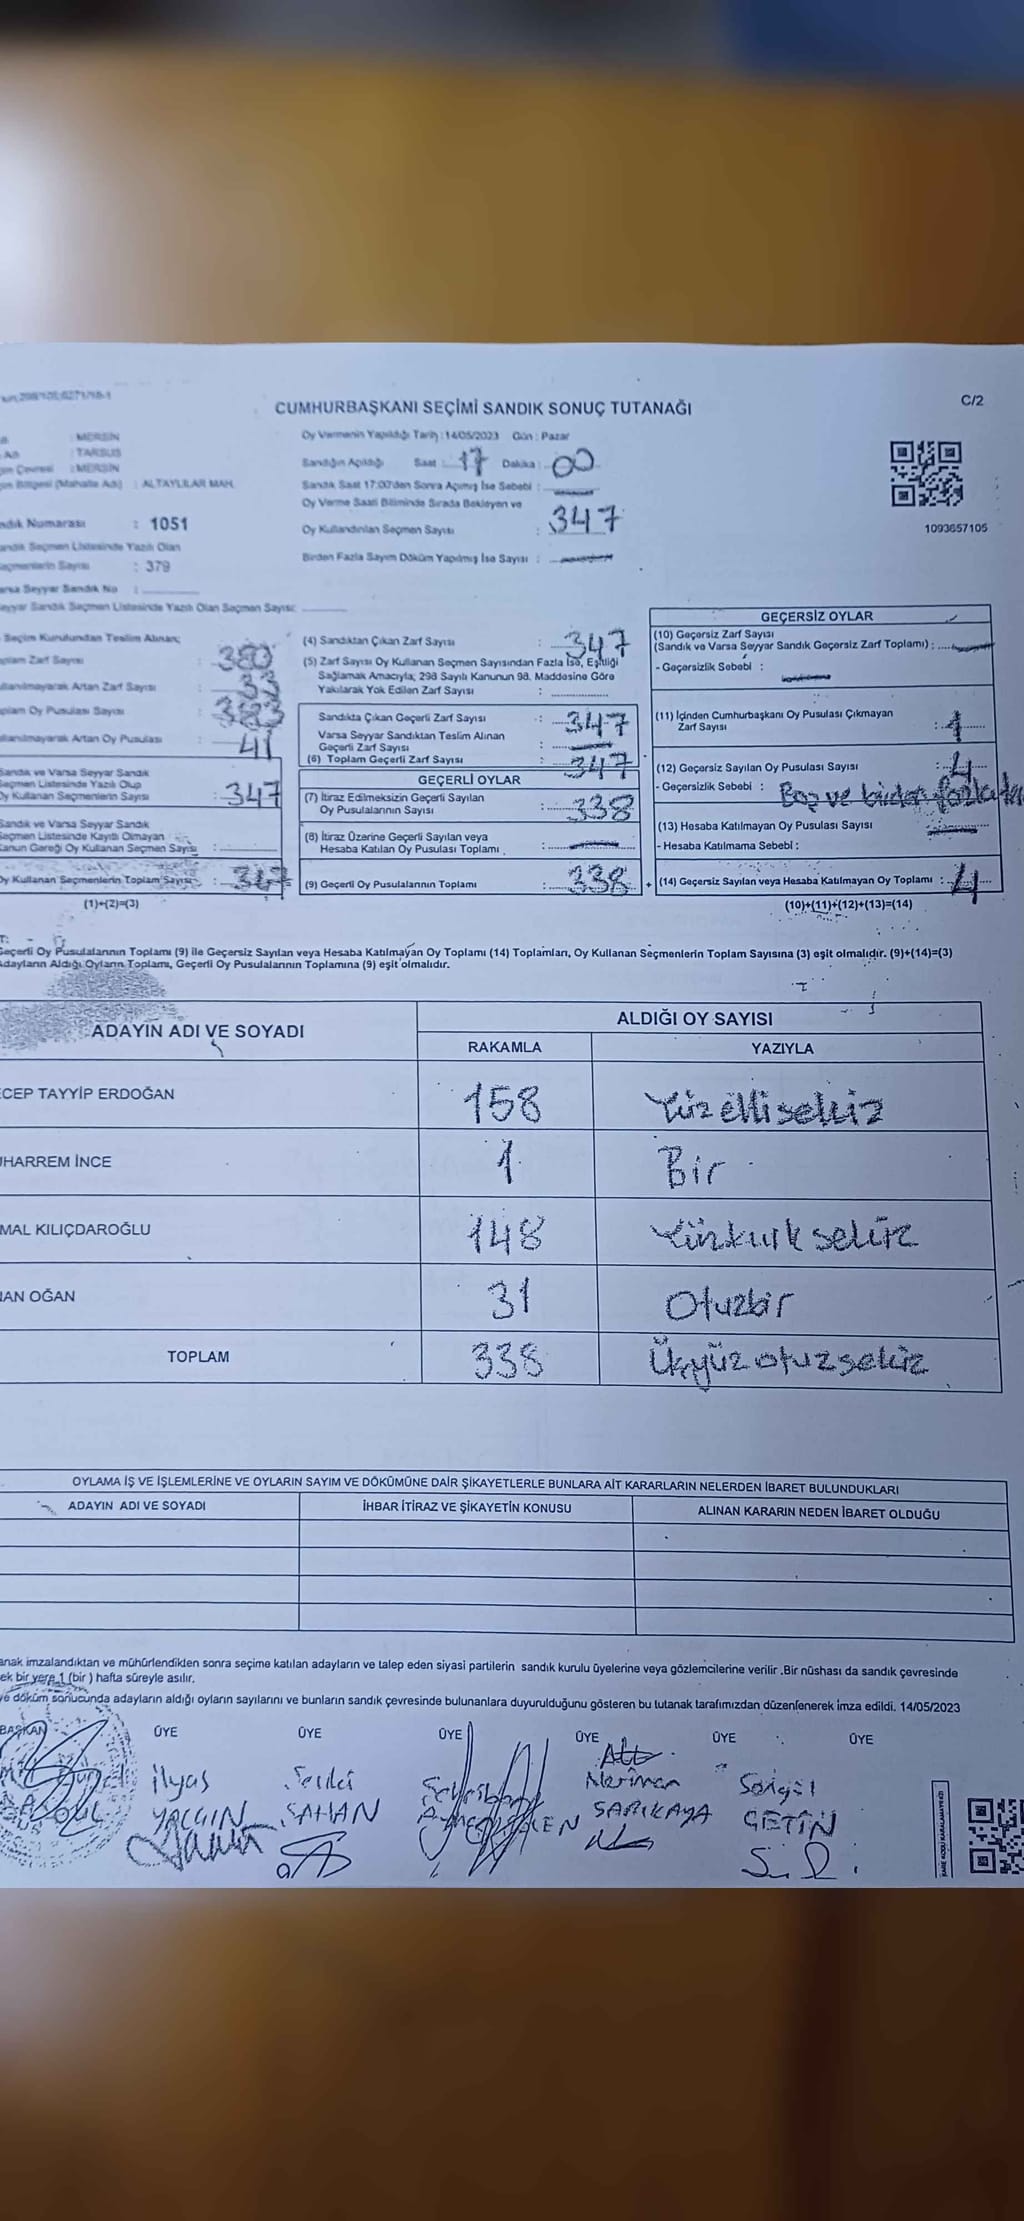 CUMHURBAŞKANI SEÇİMİ SANDIK SONUÇ TUTANAĞI
C/2
: MERSİN
: TARSUS
: MERSİN
(Mahalle Adı) : ALTAYLILAR MAH.
Numarası : 1051
Seçmen Listesinde Yazılı Olan
Sayısı : 379
Seyyar Sandık No :
Seyyar Sandık Seçmen Listesinde Yazılı Olan Seçmen Sayısı:
Oy Vermenin Yapıldığı Tarih : 14/05/2023 Gün : Pazar
Sandığın Açıldığı Saat : 17 Dakika : 00
Sandık Saat 17:00'den Sonra Açılmış İse Sebebi :
Oy Verme Saati Bitiminde Sırada Bekleyen ve
Oy Kullandırılan Seçmen Sayısı : 347
Birden Fazla Sayım Döküm Yapılmış İse Sayısı :
1093657105
Seçim Kurulundan Teslim Alınan;
Zarf Sayısı : 380
Artan Zarf Sayısı : 33
Oy Pusulası Sayısı :
Artan Oy Pusulası : 41
Sandık ve Varsa Seyyar Sandık
Seçmen Listesinde Yazılı Olup
Oy Kullanan Seçmenlerin Sayısı : 347
Sandık ve Varsa Seyyar Sandık
Seçmen Listesinde Kayıtlı Olmayan
Kanun Gereği Oy Kullanan Seçmen Sayısı :
Oy Kullanan Seçmenlerin Toplam Sayısı : 347
(1)+(2)=(3)
(4) Sandıktan Çıkan Zarf Sayısı : 347
(5) Zarf Sayısı Oy Kullanan Seçmen Sayısından Fazla İse, Eşitliği
Sağlamak Amacıyla; 298 Sayılı Kanunun 98. Maddesine Göre
Yakılarak Yok Edilen Zarf Sayısı :
Sandıkta Çıkan Geçerli Zarf Sayısı : 347
Varsa Seyyar Sandıktan Teslim Alınan
Geçerli Zarf Sayısı :
(6) Toplam Geçerli Zarf Sayısı : 347
GEÇERLİ OYLAR
(7) İtiraz Edilmeksizin Geçerli Sayılan
Oy Pusulalarının Sayısı : 338
(8) İtiraz Üzerine Geçerli Sayılan veya
Hesaba Katılan Oy Pusulası Toplamı :
(9) Geçerli Oy Pusulalarının Toplamı : 338
+
GEÇERSİZ OYLAR
(10) Geçersiz Zarf Sayısı
(Sandık ve Varsa Seyyar Sandık Geçersiz Zarf Toplamı) :
- Geçersizlik Sebebi :
(11) İçinden Cumhurbaşkanı Oy Pusulası Çıkmayan
Zarf Sayısı : 1
(12) Geçersiz Sayılan Oy Pusulası Sayısı : 4
- Geçersizlik Sebebi : Boş ve birden fazla
(13) Hesaba Katılmayan Oy Pusulası Sayısı
- Hesaba Katılmama Sebebi :
(14) Geçersiz Sayılan veya Hesaba Katılmayan Oy Toplamı : 4
(10)+(11)+(12)+(13)=(14)
Geçerli Oy Pusulalarının Toplamı (9) ile Geçersiz Sayılan veya Hesaba Katılmayan Oy Toplamı (14) Toplamları, Oy Kullanan Seçmenlerin Toplam Sayısına (3) eşit olmalıdır. (9)+(14)=(3)
Adayların Aldığı Oyların Toplamı, Geçerli Oy Pusulalarının Toplamına (9) eşit olmalıdır.
ADAYIN ADI VE SOYADI
ALDIĞI OY SAYISI
RAKAMLA
YAZIYLA
CEP TAYYİP ERDOĞAN 158 Yüzellisekiz
HARREM İNCE 1 Bir
MAL KILIÇDAROĞLU 148 Yüzkırk sekiz
AN OĞAN 31 Otuzbir
TOPLAM 338 Üçyüzotuzsekiz
OYLAMA İŞ VE İŞLEMLERİNE VE OYLARIN SAYIM VE DÖKÜMÜNE DAİR ŞİKAYETLERLE BUNLARA AİT KARARLARIN NELERDEN İBARET BULUNDUKLARI
ADAYIN ADI VE SOYADI
İHBAR İTİRAZ VE ŞİKAYETİN KONUSU
ALINAN KARARIN NEDEN İBARET OLDUĞU
anak imzalandıktan ve mühürlendikten sonra seçime katılan adayların ve talep eden siyasi partilerin sandık kurulu üyelerine veya gözlemcilerine verilir .Bir nüshası da sandık çevresinde
ek bir yere 1 (bir ) hafta süreyle asılır.
ve döküm sonucunda adayların aldığı oyların sayılarını ve bunların sandık çevresinde bulunanlara duyurulduğunu gösteren bu tutanak tarafımızdan düzenlenerek imza edildi. 14/05/2023
BAŞKAN ÜYE ÜYE ÜYE ÜYE ÜYE ÜYE
İlyas
YALÇIN
ŞAHAN
Neriman
SARIKAYA
Songül
ÇETİN